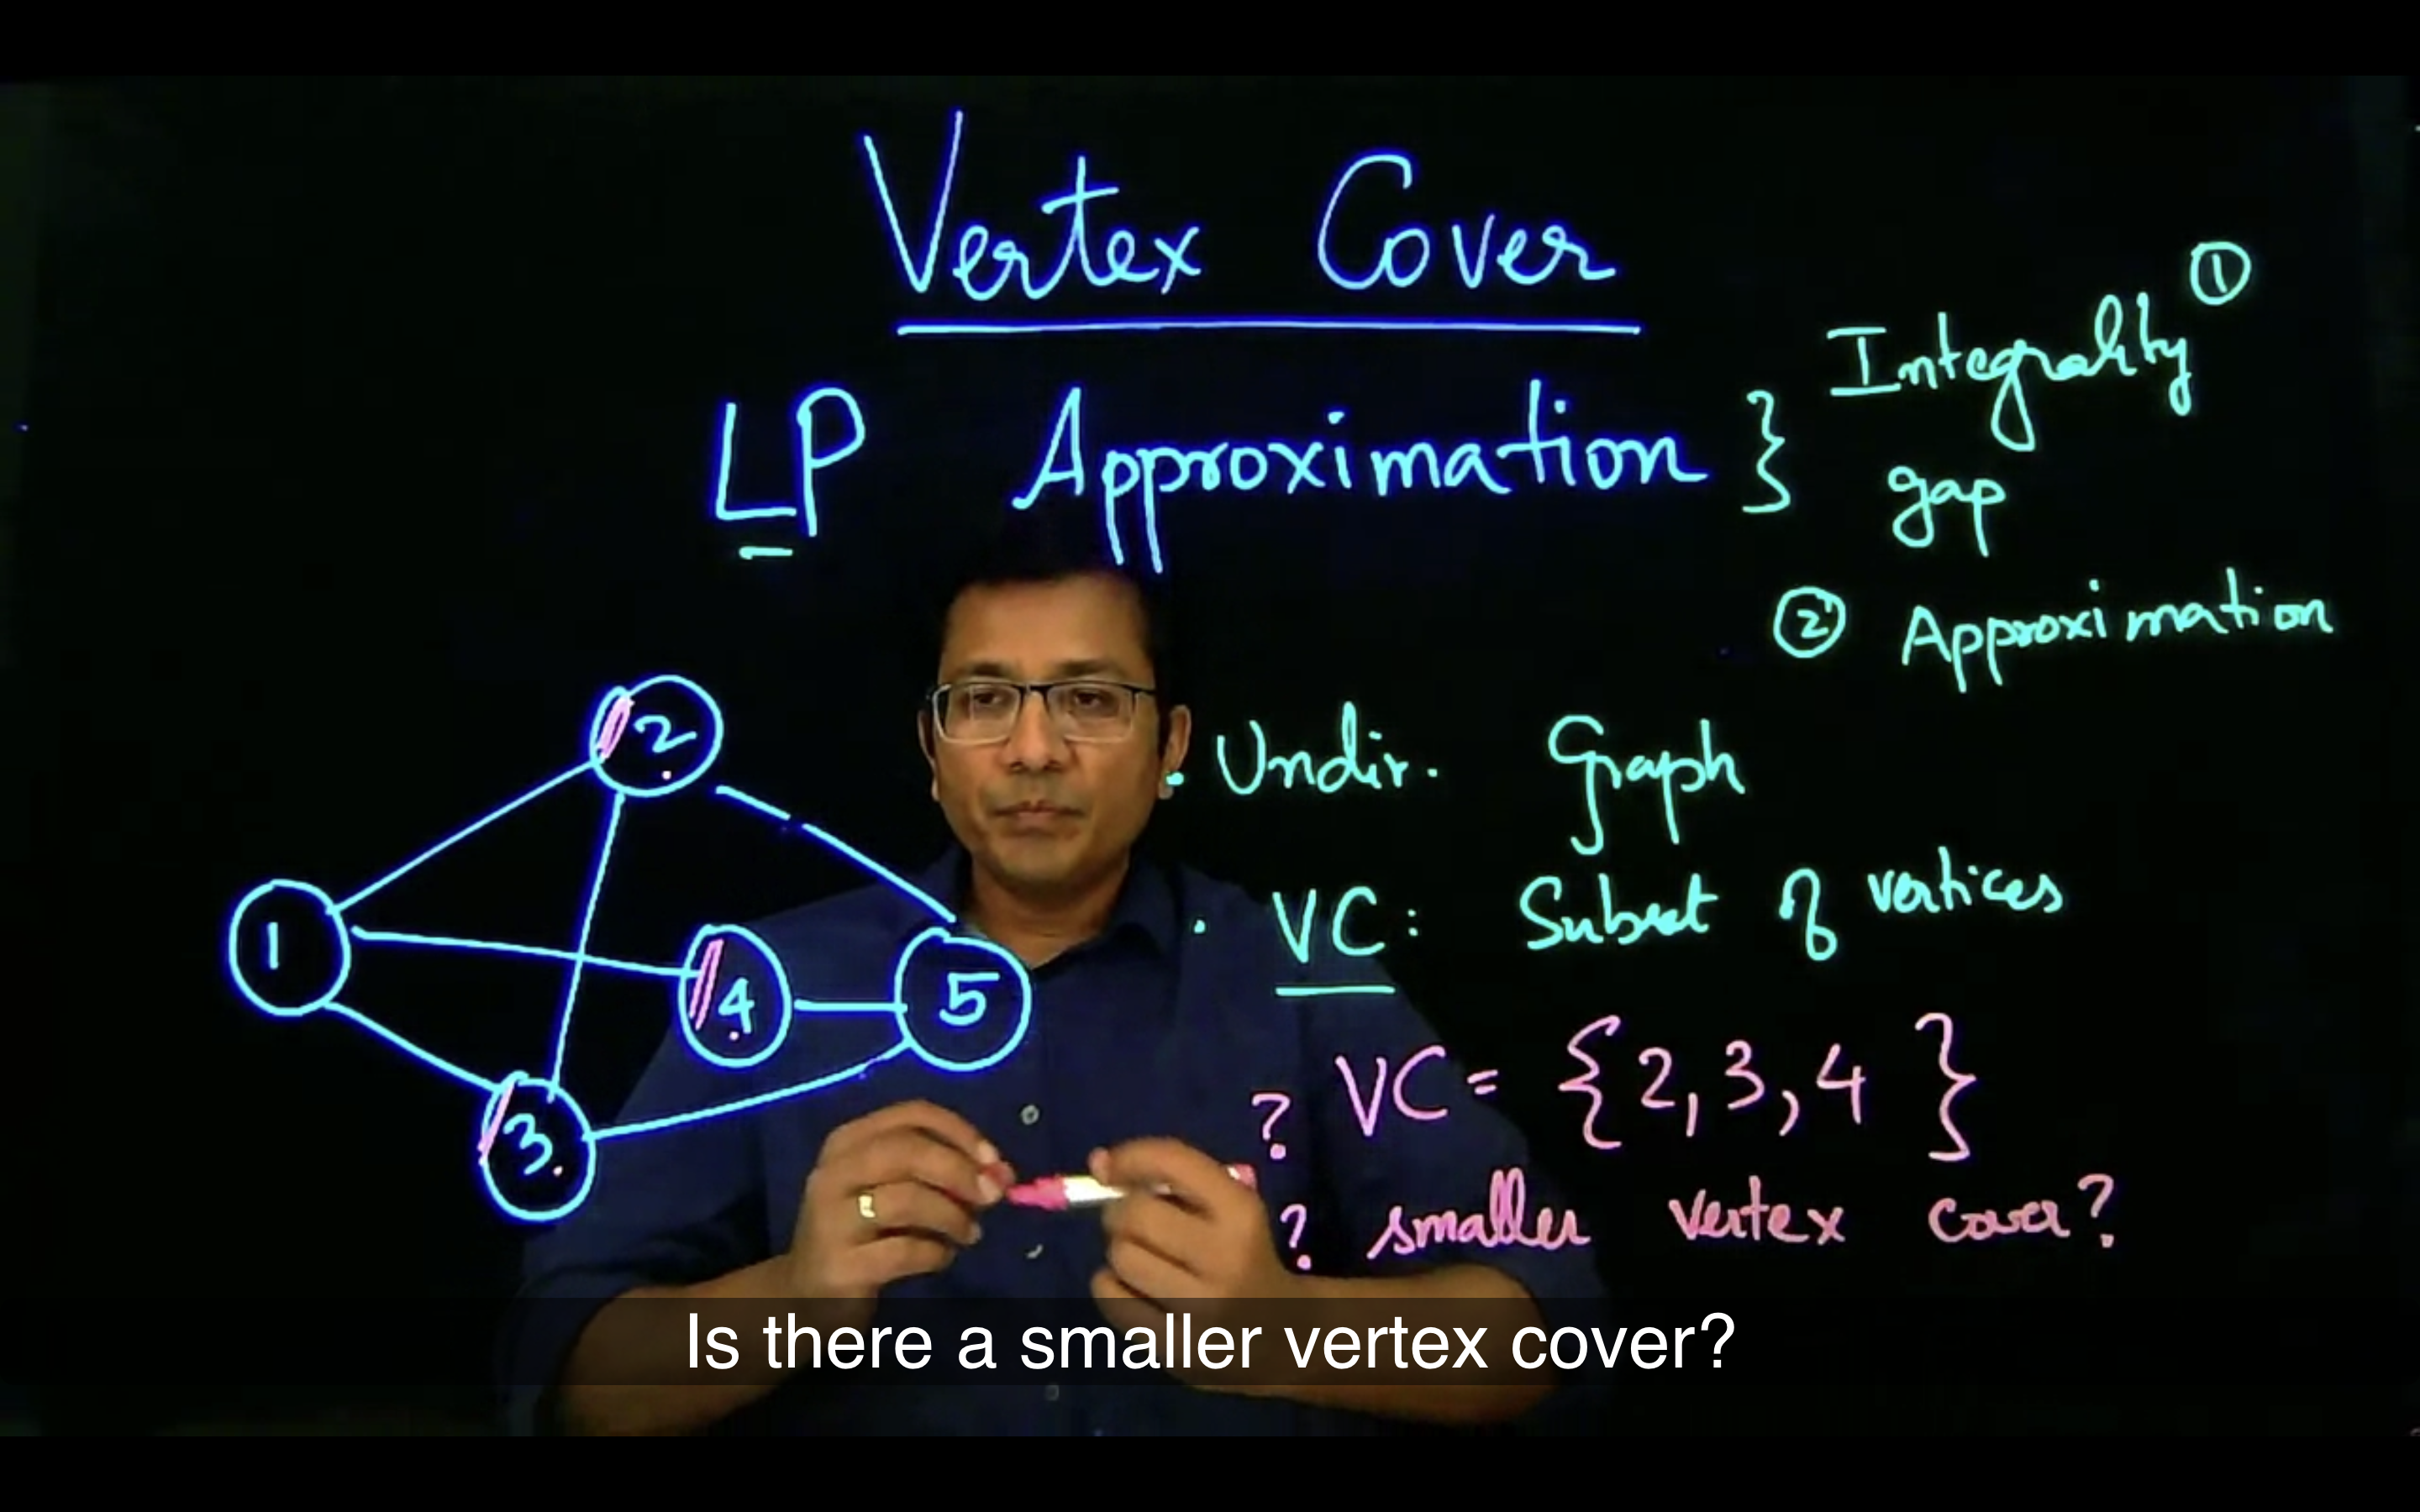 Vertex Cover
LP Approximation } Integrality ①
gap
② Approximation
2
1
4
5
3
. Undir. Graph
. VC: Subset of vertices
? VC = {2,3,4 }
? smaller vertex cover?
Is there a smaller vertex cover?